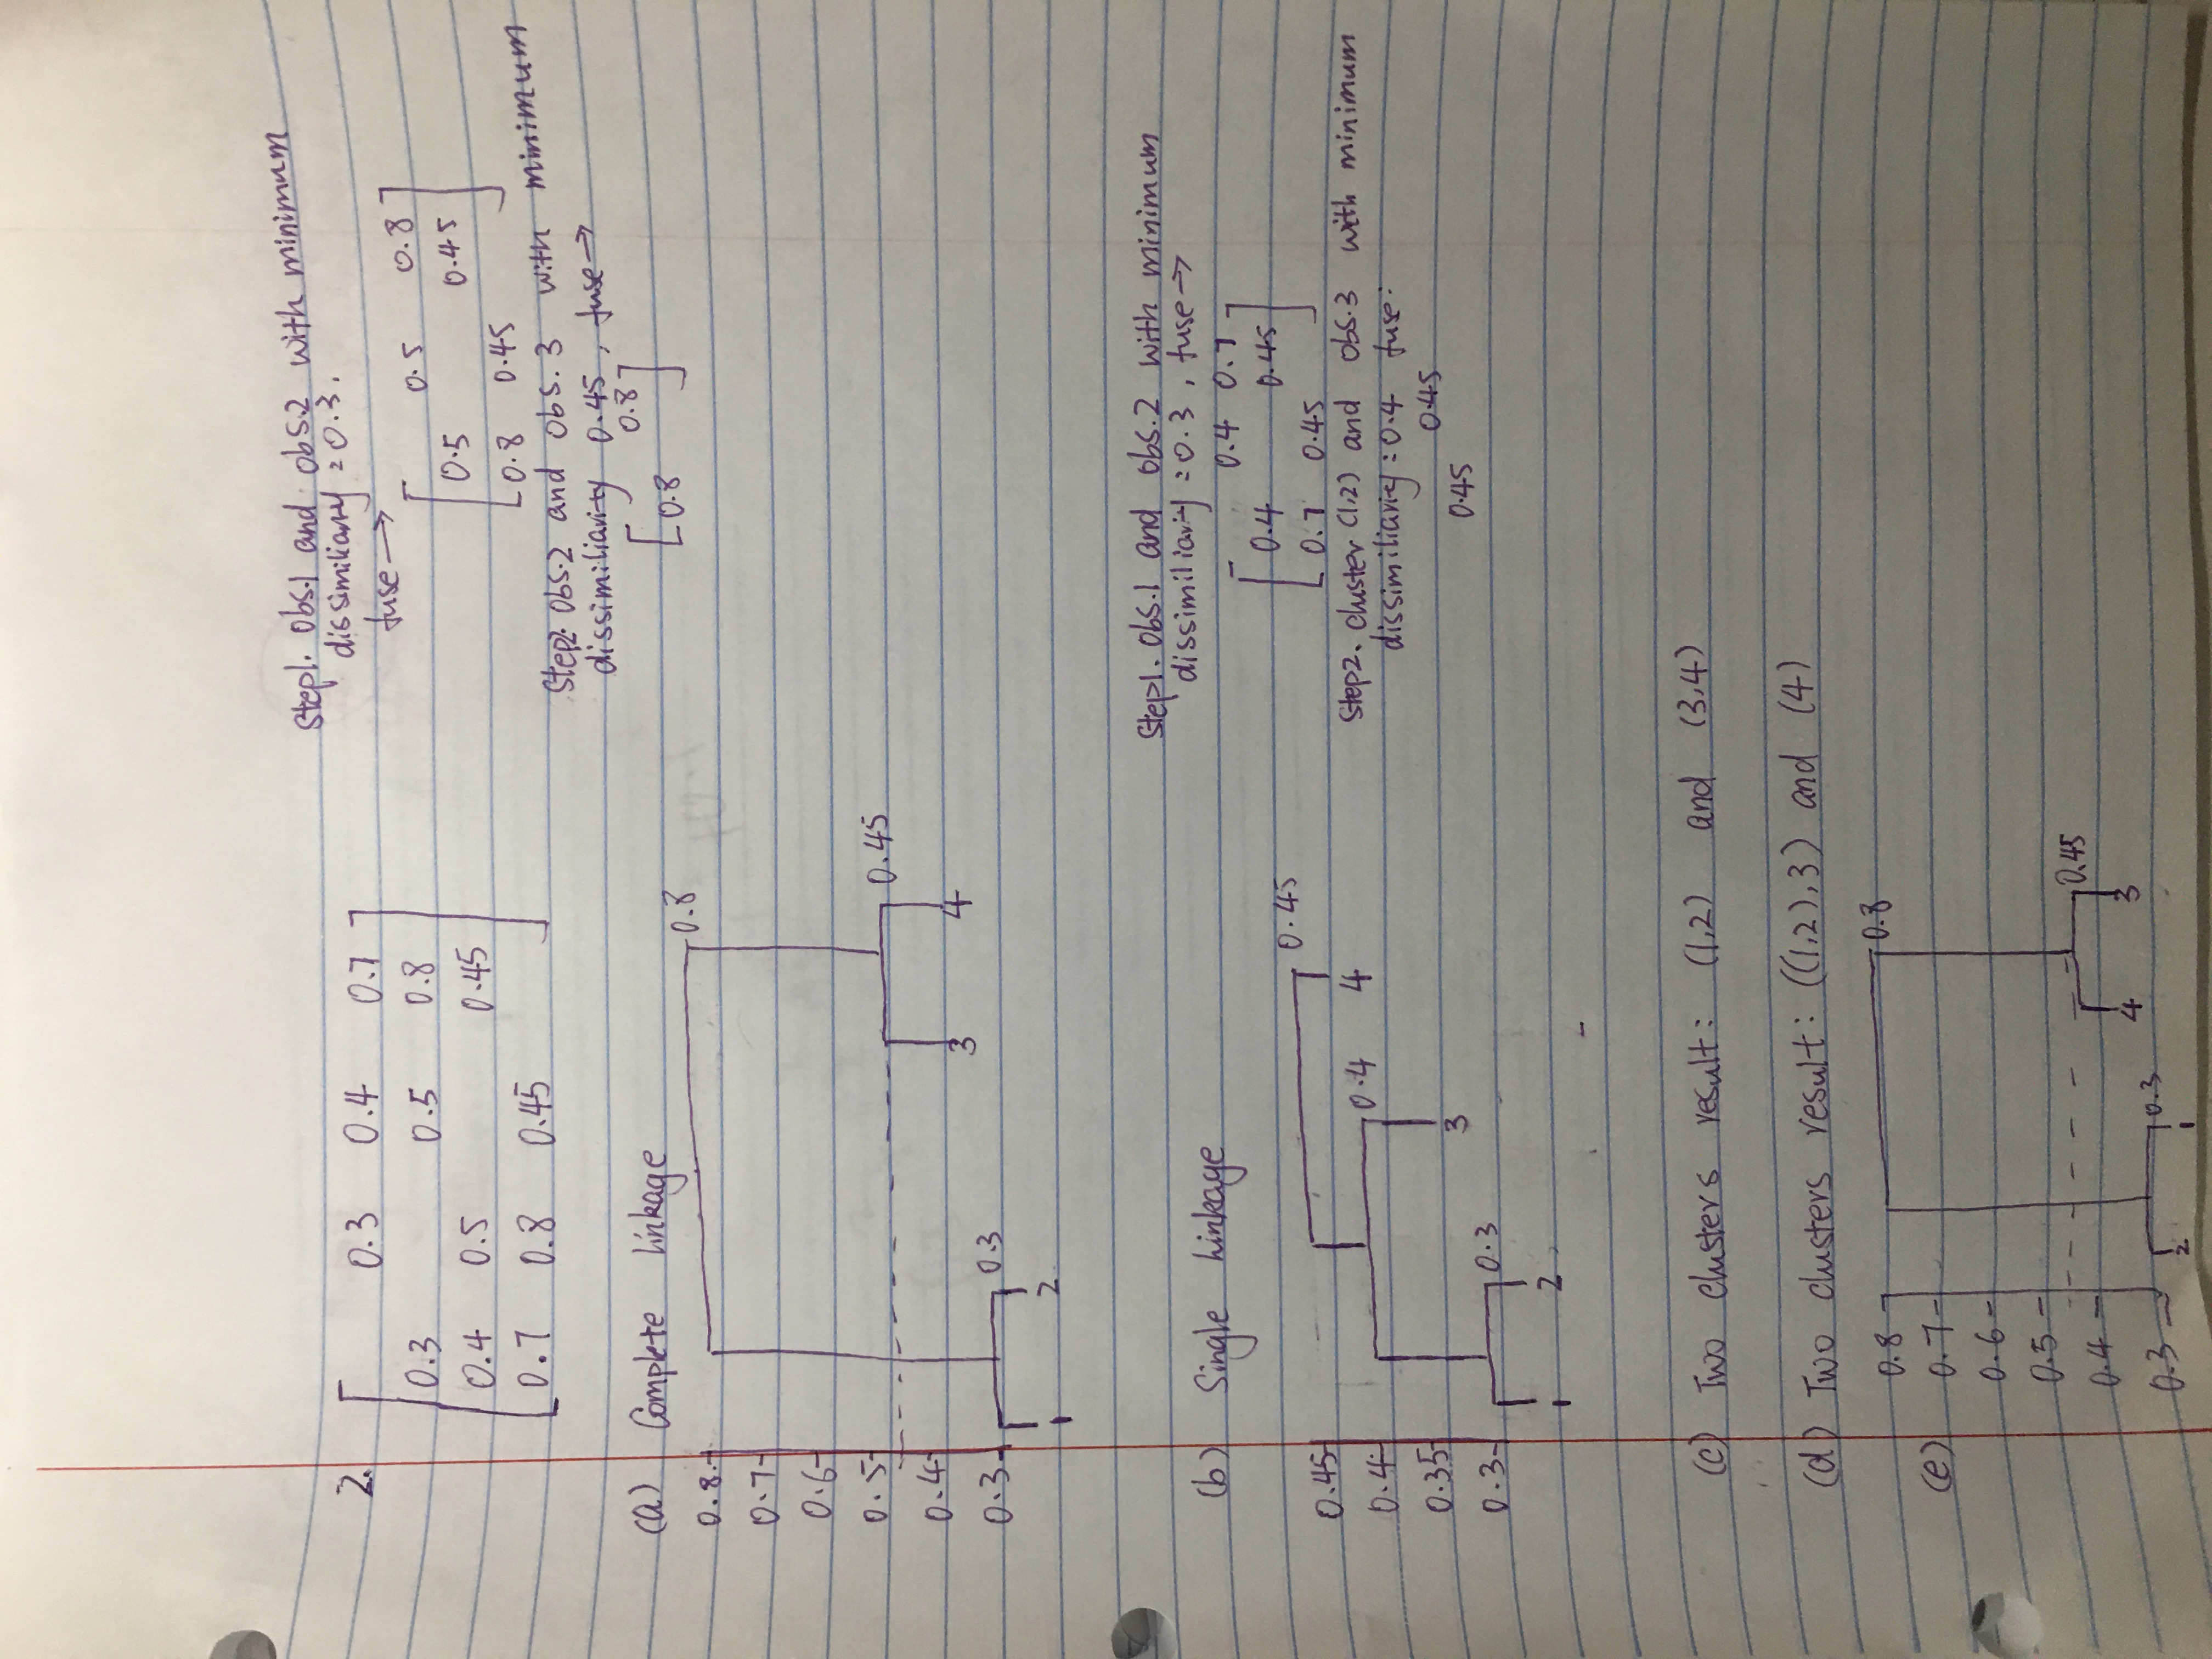 Step1. Obs.1 and obs.2 with minimum
dissimiliary = 0.3.
fuse →
2.
0.3 0.4 0.7
0.3 0.5 0.8
0.4 0.5 0.45
0.7 0.8 0.45
0.5 0.8
0.5 0.45
0.8 0.45
Step2. Obs.2 and obs.3 with minimum
dissimiliarity 0.45, fuse →
0.8
0.8
(a) Complete linkage
0.8
0.8
0.7
0.6
0.5
0.45
0.4
3 4
0.3
0.3
1 2
Step1. Obs.1 and obs.2 with minimum
dissimiliarity = 0.3, fuse →
0.4 0.7
0.4 0.45
0.7 0.45
Step2. cluster (1,2) and obs.3 with minimum
dissimiliarity: 0.4 fuse:
0.45
0.45
(b) Single Linkage
0.45
0.45
4
0.4
0.4
0.35
3
0.3
0.3
1 2
(c) Two clusters result: (1,2) and (3,4)
(d) Two clusters result: ((1,2),3) and (4)
(e)
0.8
0.8
0.7
0.6
0.5
0.45
0.4
4 3
0.3
0.3
2 1